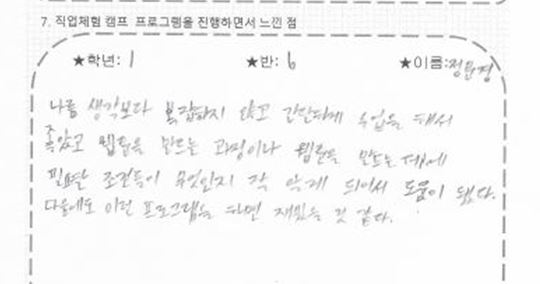 7. 직업체험 캠프 프로그램을 진행하면서 느낀 점
★학년: 1 ★반: 6 ★이름:정문경
나름 생각보다 복잡하지 않고 간단하게 수업을 해서
좋았고 웹툰을 만드는 과정이나 웹툰을 만드는데에
필요한 조건들이 무엇인지 잘 알게 되어서 도움이 됐다.
다음에도 이런 프로그램을 하면 재밌을 것 같다.